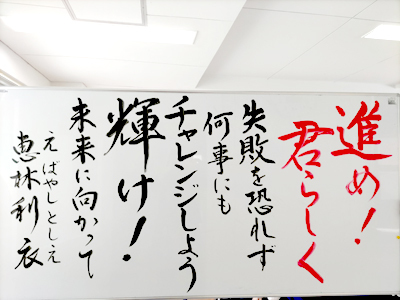 進め!
君らしく
失敗を恐れず
何事にも
チャレンジしよう
輝け!
未来に向かって
えばやしとしえ
恵林利衣